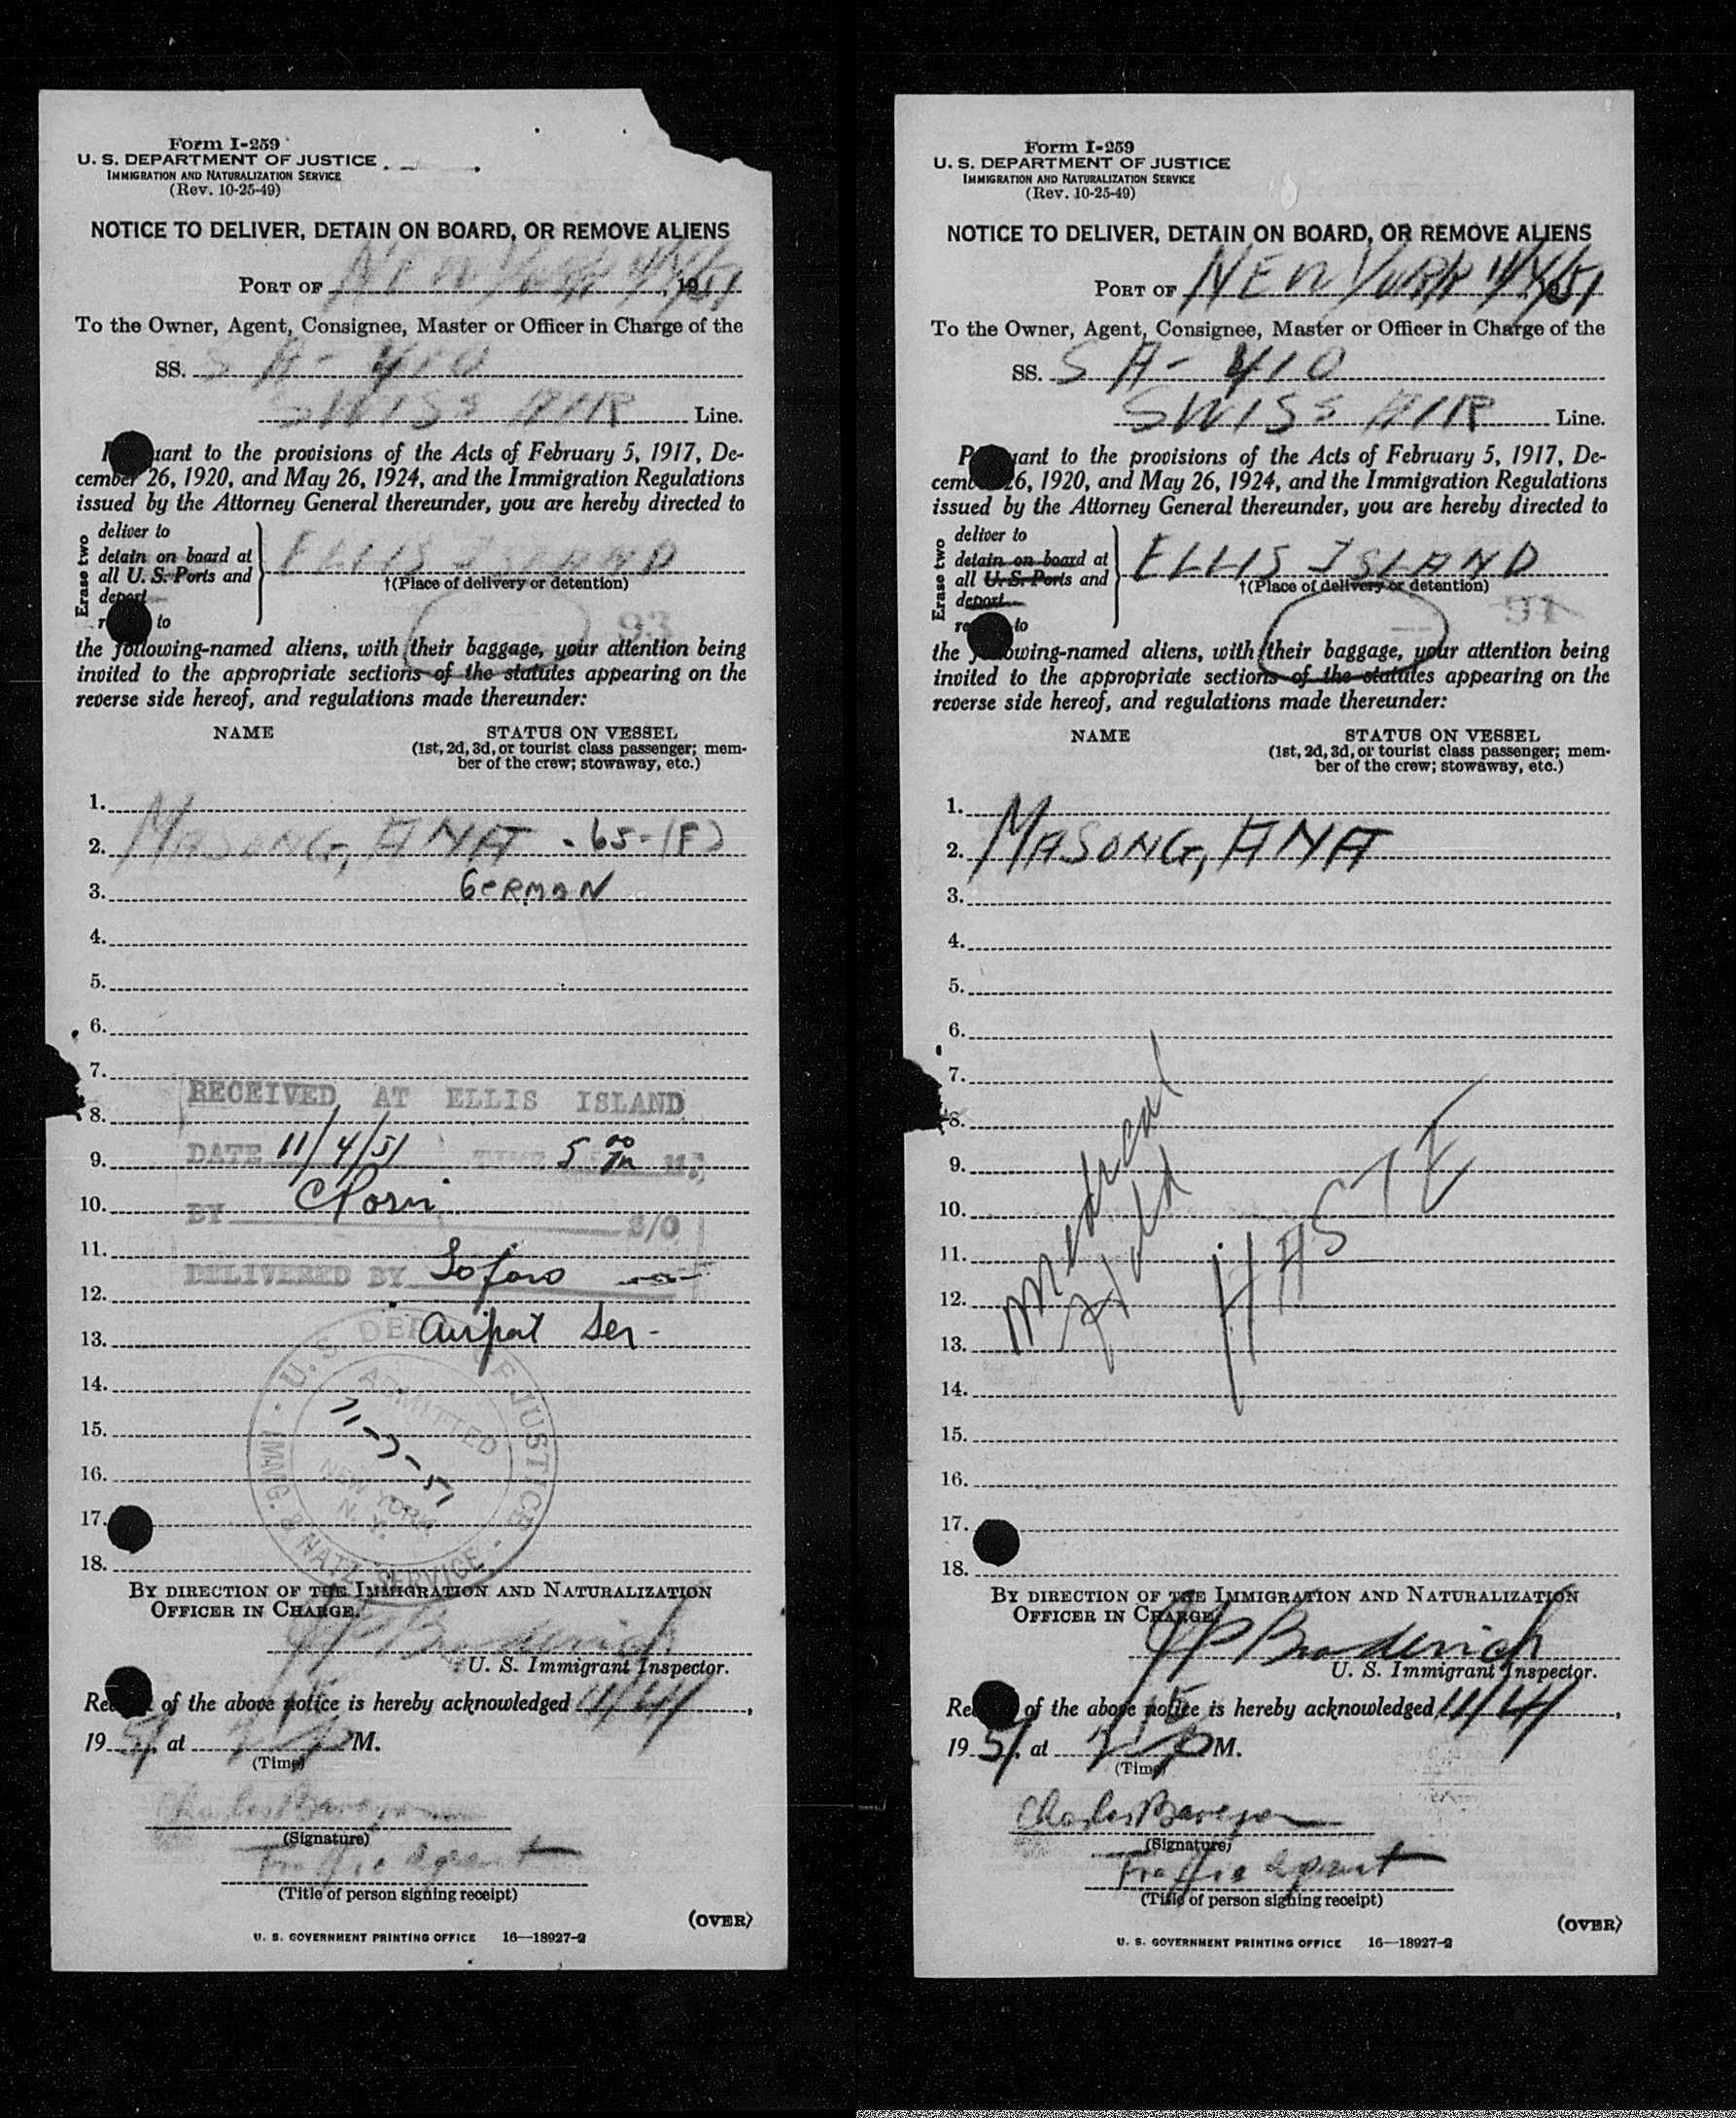 Form I-259
U. S. DEPARTMENT OF JUSTICE
IMMIGRATION AND NATURALIZATION SERVICE
(Rev. 10-25-49)
NOTICE TO DELIVER, DETAIN ON BOARD, OR REMOVE ALIENS
PORT OF NEW YORK 11/4/51
To the Owner, Agent, Consignee, Master or Officer in Charge of the
SS. SA-410
SWISS AIR Line.
uant to the provisions of the Acts of February 5, 1917, De-
cember 26, 1920, and May 26, 1924, and the Immigration Regulations
issued by the Attorney General thereunder, you are hereby directed to
Erase two
deliver to
detain on board at
all U. S. Ports and
deport
to
ELLIS ISLAND
†(Place of delivery or detention)
93
the following-named aliens, with their baggage, your attention being
invited to the appropriate sections of the statutes appearing on the
reverse side hereof, and regulations made thereunder:
NAME STATUS ON VESSEL
(1st, 2d, 3d, or tourist class passenger; mem-
ber of the crew; stowaway, etc.)
1.
2. MASONG, ANA - 65-(F)
3. GERMAN
4.
5.
6.
7.
RECEIVED AT ELLIS ISLAND
8.
9. DATE 11/4/51 TIME 5 00 M.
10. BY S/O
11.
DELIVERED BY
12.
13. Airport Ser-
14.
15.
16.
17.
18.
U. S. DEPT. OF JUSTICE
ADMITTED
11-7-51
NEW YORK
N. Y.
IMMIG. & NATZ. SERVICE
BY DIRECTION OF THE IMMIGRATION AND NATURALIZATION
OFFICER IN CHARGE.
JP Broderick
U. S. Immigrant Inspector.
Re of the above notice is hereby acknowledged 11/4/
1951, at P M.
(Time)
Charles
(Signature)
Traffic Agent
(Title of person signing receipt)
(OVER)
U. S. GOVERNMENT PRINTING OFFICE 16—18927-2
Form I-259
U. S. DEPARTMENT OF JUSTICE
IMMIGRATION AND NATURALIZATION SERVICE
(Rev. 10-25-49)
NOTICE TO DELIVER, DETAIN ON BOARD, OR REMOVE ALIENS
PORT OF NEW YORK 11/4/51
To the Owner, Agent, Consignee, Master or Officer in Charge of the
SS. SA-410
SWISS AIR Line.
P uant to the provisions of the Acts of February 5, 1917, De-
cemb 26, 1920, and May 26, 1924, and the Immigration Regulations
issued by the Attorney General thereunder, you are hereby directed to
Erase two
deliver to
detain on board at
all U. S. Ports and
deport
re to
ELLIS ISLAND
†(Place of delivery or detention)
the owing-named aliens, with their baggage, your attention being
invited to the appropriate sections of the statutes appearing on the
reverse side hereof, and regulations made thereunder:
NAME STATUS ON VESSEL
(1st, 2d, 3d, or tourist class passenger; mem-
ber of the crew; stowaway, etc.)
1.
2. MASONG, ANA
3.
4.
5.
6.
7.
8.
9.
10.
11.
12.
13.
14.
15.
16.
17.
18.
Medical
Hold
BY DIRECTION OF THE IMMIGRATION AND NATURALIZATION
OFFICER IN CHARGE.
JP Broderick
U. S. Immigrant Inspector.
Re of the above notice is hereby acknowledged 11/4/
1951, at P M.
(Time)
Charles
(Signature)
Traffic Agent
(Title of person signing receipt)
(OVER)
U. S. GOVERNMENT PRINTING OFFICE 16—18927-2